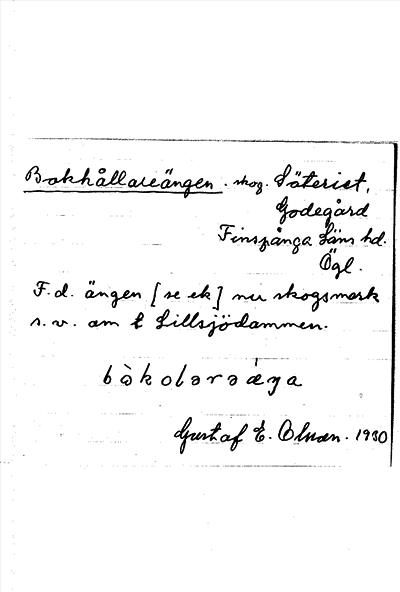 Bokhållareängen. skog. Säteriet,
Godegård
Finspånga läns hd.
Ögl.
F.d. ängen [se ek] nu skogsmark
s.v. om Lillsjödammen.
Gustaf E. Olsson. 1930